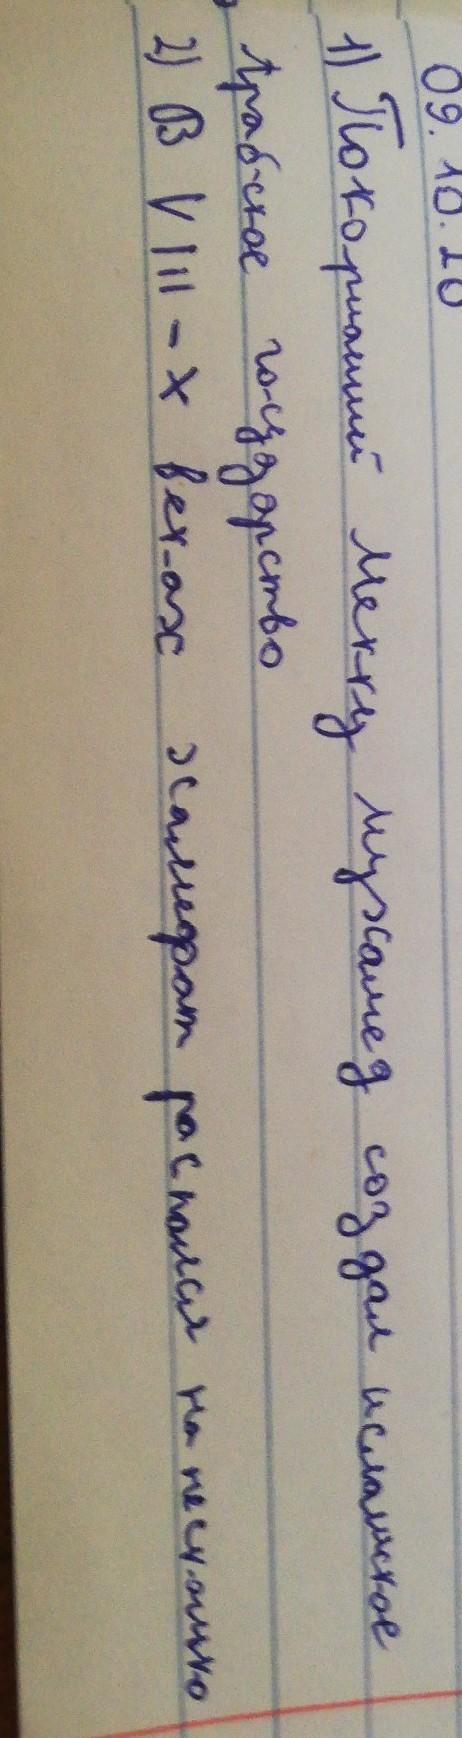 09.10.20
1) Покоривший Мекку Мухамед создал исламское
Арабское государство
2) В VIII - X веках халифат распался на несколько